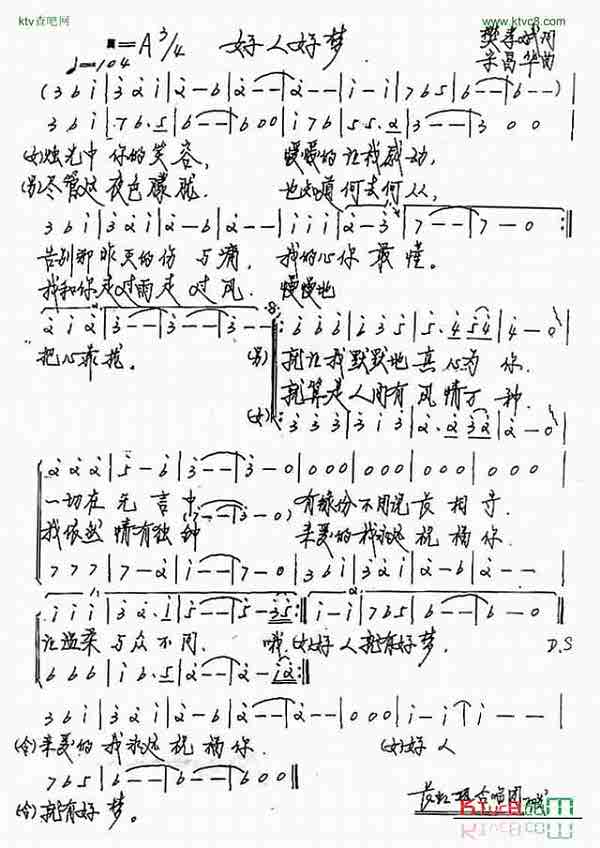 ktv查吧网
www.ktvc8.com
=A 3/4 好人好梦 樊孝斌词
♩=104 宋昌华曲
(3 6 i | 3 2 i | 2 - 6 | 2 - - | 2 - - | i - i | 7 6 5 | 6 - - | 6 - -) |
3 6 i | 7 6. 5 | 6 - - | 6 0 0 | i 7 6 | 5 5. 2 | 3 - - | 3 0 0 |
(女)烛光中 你的笑容, 慢慢的让我感动,
(男)尽管这 夜色朦胧. 也知道何去何从,
3 6 i | 3 2 i | 2 - 6 | 2 - - | i i i | 2 - 3 | 7 - - | 7 - 0 :||
告别那昨天的伤 与痛, 我的心你最懂。
我和你走过雨走 过风. 慢慢地
2 i 2 | 3 - - | 3 - - | 3 - - |
6 6 6 | 6 3 5 | 5. 4 5 4 | 4 - 0 |
把心靠拢。 (男) 就让我默默地真心为 你.
就算是人间有风情万 种.
(女) 3 3 3 | 3 i 3 | 2. 2 3 2 | 2 - 0 |
2 2 2 | 5 - 6 | 3 - - | 3 - 0 | 0 0 0 | 0 0 0 | 0 0 0 | 0 0 0 |
一切在 无 言 中 有缘份不用说长相守
(3 - - | 3 - 0)
我依然 情有独钟 亲爱的我永远祝福你.
7 7 7 | 7 - 2 | i - - | 7 - 0 | 3 6 i | 3 2 i | 2 - 6 | 2 - - |
i i i | 3 2. i | 5 - - | 5 - 3 5 :|| i - i | 7 6 5 | 6 - - | 6 - 0 |
让温柔 与众不同. 哦 (女)好 人就有好梦. D.S
6 6 6 | i 6. 5 | 5 - - | 2 - i 2 :||
3 6 i | 3 2 i | 2 - 6 | 2 - - | 2 - - | 0 0 0 | i - i | i - - |
(合)亲爱的我永远祝福你. (女)好 人
7 6 5 | 6 - - | 6 - - | 6 0 0 ||
(合)就有好 梦。
KTVC8.COM